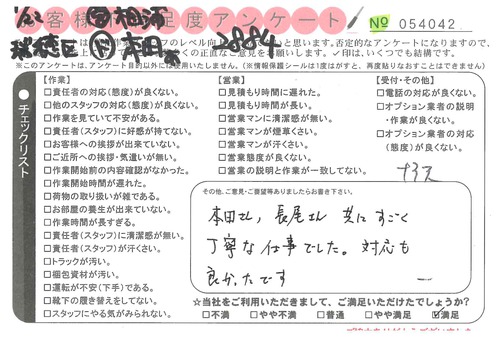 お客様満足度アンケート
№ 054042
1/22
瑞穂区 本田
スタッフのレベル向上
と思います。否定的なアンケートになりますので、
正直なご意見をお願いします。✓印は、いくつでも結構です。
※このアンケートは、アンケート目的以外には使用いたしません。(※情報保護シールは1度はがすと、再度貼りなおすことはできません)
チェックリスト
【作業】
□責任者の対応(態度)が良くない。
□他のスタッフの対応(態度)が良くない。
□作業を見ていて不安がある。
□責任者(スタッフ)に好感が持てない。
□お客様への挨拶が出来ていない。
□ご近所への挨拶・気遣いが無い。
□作業開始前の内容確認がなかった。
□作業開始時間が遅れた。
□荷物の取り扱いが雑である。
□お部屋の養生が出来ていない。
□作業時間が長すぎる。
□責任者(スタッフ)に清潔感が無い。
□責任者(スタッフ)が汗くさい。
□トラックが汚い。
□梱包資材が汚い。
□運転が不安(下手)である。
□靴下の履き替えをしてない。
□スタッフにやる気がみられない。
【営業】
□見積もり時間に遅れた。
□見積もり時間が長い。
□営業マンに清潔感が無い。
□営業マンが煙草くさい。
□営業マンが汗くさい。
□営業態度が良くない。
□営業の説明と作業が一致してない。
【受付・その他】
□電話の対応が良くない。
□オプション業者の説明
・作業が良くない。
□オプション業者の対応
(態度)が良くない。
その他、ご意見・ご要望等ありましたらお書き下さい。
本田さん,長尾さん 共に すごく
丁寧な仕事でした。対応も
良かったです
☆当社をご利用いただきまして、ご満足いただけたでしょうか?
□不満 □やや不満 □普通 □やや満足 ☑満足